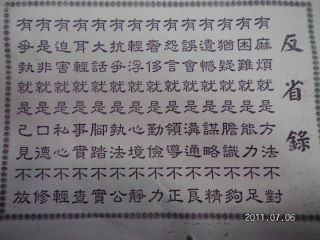 反省錄
有麻煩就是方法不對
有困難就是能力不足
有猶疑就是膽識不夠
有遺憾就是謀略不精
有誤會就是溝通不良
有怨言就是領導不正
有奢侈就是勤儉不力
有輕浮就是心境不靜
有抗爭就是執法不公
有大話就是腳踏不實
有耳輕就是事實不查
有迫害就是私心不輕
有是非就是口德不修
有爭執就是己見不放
2011.07.06